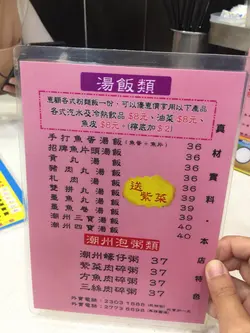 湯飯類
惠顧各式粉麵飯一份，可以優惠價享用以下產品
各式汽水及冷熱飲品 $8元，油菜 $8元，
魚皮 $8元。(檸底加 $2)
手打魚膏湯飯 (魚膏、魚片) 36
招牌魚片頭湯飯 36
黃丸湯飯 36
豬肉丸湯飯 36
札肉湯飯 36
雙丸湯飯 36
墨魚丸湯飯 39
墨魚卷湯飯 39
潮州三寶湯飯 40
潮州四寶湯飯 40
送紫菜
真材實料·本店特色
潮州泡粥類
潮州蠔仔粥 37
紫菜肉碎粥 37
方魚肉碎粥 37
三絲肉碎粥 37
外賣電話：2303 1
外賣電話：2779